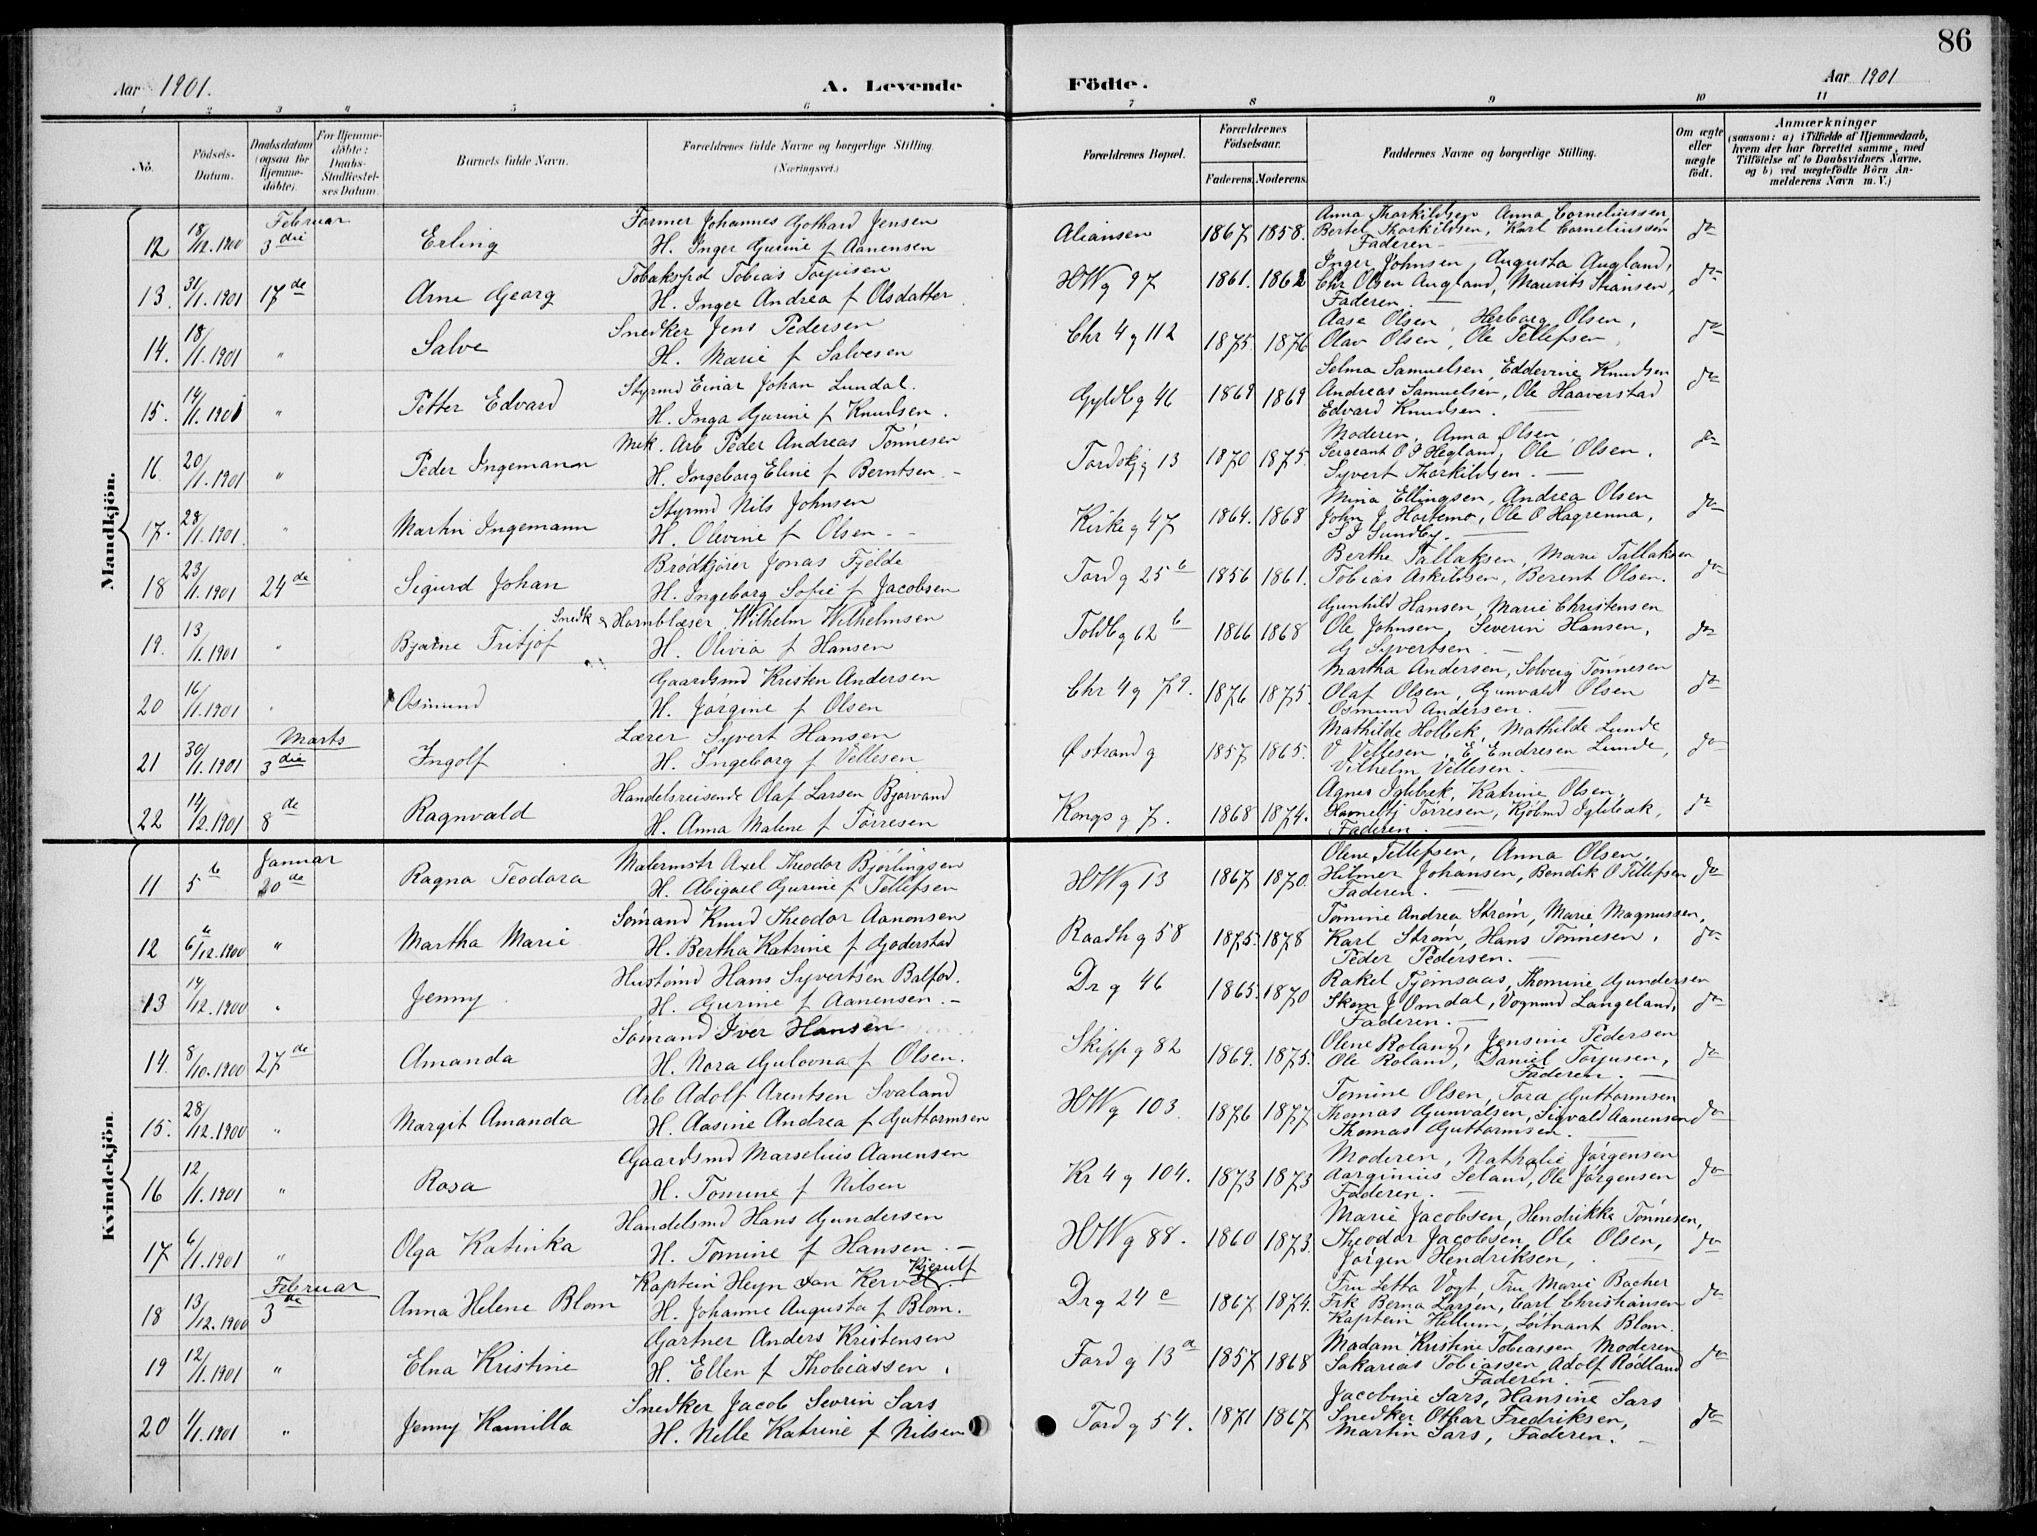 86
Aar 1901.
A. Levende Födte.
Aar 1901
1 2 3 4 5 6 7 8 9 10 11
No.
Födsels-Datum.
Daabsdatum (ogsaa for Hjemme-döbte).
For Hjemme-döbte: Daabs-Stadfæstel-ses Datum.
Barnets fulde Navn.
Forældrenes fulde Navne og borgerlige Stilling. (Næringsvei.)
Forældrenes Bopæl.
Forældrenes Födselsaar.
Faderens. Moderens.
Faddernes Navne og borgerlige Stilling.
Om ægte eller uægte födt.
Anmærkninger (saasom: a) i Tilfælde af Hjemmedaab, hvem der har forrettet samme, med Tilföielse af to Daabsvidners Navne, og b) ved uægtefödte Börn Anmelderens Navn m. V.)
Mandkjön.
Februar
12 18/12.1900 3die Erling Former Johannes Gothard Jensen
H. Inger Gurine f Aanensen
Aliansen 1867 1858.
Anna Thorkildsen Anna Corneliussen,
Bertel Thorkildsen, Karl Corneliussen
Faderen — do
13. 31/1.1901 17de Arne Georg Tobaksfrd Tobias Torjusen
H. Inger Andrea f Olsdatter.
HWg 97 1861. 1862
Inger Johnsen, Augusta Augland,
Chr Olsen Augland, Maurits Stransen,
Faderen. — do
14. 18/1.1901 " Salve Snedker Jens Pedersen
H. Marie f Salvesen
Chr 4 g 112 1875. 1876
Aase Olsen, Herborg Olsen,
Olav Olsen, Ole Tellefsen, do
15. 14/1.1901 " Petter Edvard Styrmd Einar Johan Lundal.
H. Inga Gurine f Knudsen.
Gyldb g 46 1869 1869
Selma Samuelsen, Eddevine Knudsen
Andreas Samuelsen, Ole Haaverstad
Edvard Knudsen. — do
16. 20/1.1901 " Peder Ingemann Mek. Arb Peder Andreas Tönnesen
H. Ingeborg Eline f Berntsen —
Tordskj g 13 1870 1875.
Moderen, Anna Olsen,
Sergeant O J Hegland, Ole Olsen,
Syvert Thorkildsen. — do
17. 28/1.1901. " Martin Ingemann Styrmd Nils Johnsen
H. Olevine f Olsen. —
Kirke g 47 1864. 1868
Mina Ellingsen, Andrea Olsen
John J Hortemo, Ole O Hagrenna,
S J Sundby. — do
18 23/1.1901 24de Sigurd Johan Brödkjörer Jonas Fjelde
H. Ingeborg Sofie f Jacobsen
Tord g 25 b 1856 1861.
Berthe Tallaksen, Marie Tallaksen
Tobias Askildsen, Berent Olsen. do
19. 13/1.1901 " Bjarne Fritjof Snedk & Hornblæser Wilhelm Wilhelmsen
H. Olivia f Hansen
Toldb g 62 b 1866 1868
Gunhild Hansen, Marie Christensen
Ole Johnsen, Severin Hansen,
G Syvertsen. — do
20 16/1.1901 " Osmund Gaardsmd Kristen Andersen
H. Jörgine f Olsen
Chr 4 g 79. 1876 1875.
Martha Andersen, Solveig Tönnesen
Olaf Olsen, Gunvald Olsen
Osmund Andersen. — do
Marts
21 30/1.1901 3die Ingolf Lærer Syvert Hansen
H. Ingeborg f Vellesen
Østrand g 1857 1865.
Mathilde Holbek, Mathilde Lunde
V Vellesen, E Endresen Lunde,
Vilhelm Vellesen. — do
22 14/12.1901 8de Ragnvald Handelsreisende Olaf Larsen Bjorvand
H. Anna Malene f Törresen
Kongs g 7. 1868 1874.
Agnes Iglebek, Katrine Olsen,
Törresen, Kjöbmd Iglebek,
Faderen. — do
Kvindekjön.
Januar
11 5 b 20de Ragna Teodora Malermstr Axel Theodor Björlingsen
H. Abigael Gurine f Tellefsen
HWg 13 1867 1870.
Olene Tellefsen, Anna Olsen,
Hilmer Johansen, Bendik O Tellefsen
Faderen. — do
12 6/12.1900 " Martha Marie Sömand Knud Theodor Aanensen
H. Bertha Katrine f Goderstad
Raadh g 58 1875. 1878
Tomine Andrea Ström, Marie Magnussen,
Karl Ström, Hans Tönnesen,
Peder Pedersen. — do
13 14/12.1900 " Jenny Hustömd Hans Syvertsen Balfod.
H. Gurine f Aanensen. —
Dr g 46 1865. 1870
Rakel Tjomsaas, Thomine Gundersen
Skom J Omdal, Vognmd Langeland,
Faderen. — do
14. 8/10.1900 27de Amanda Sömand Iver Hansen
H. Nora Gulovna f Olsen.
Skipp g 82 1869. 1875.
Olene Roland, Jensine Pedersen
Ole Roland, Daniel Torjusen,
Faderen. — do
15. 28/12.1900 " Margit Amanda Arb Adolf Arentsen Svaland
H. Aasine Andrea f Guttormsen
HWg 103. 1876 1877
Tomine Olsen, Tora Guttormsen
Thomas Gunvalsen, Sigvald Aanensen
Thomas Guttormsen. — do
16 12/1.1901 " Rosa Gaardsmd Marselius Aanensen
H. Tomine f Nilsen
Kr 4 g 104. 1873 1873
Moderen, Nathalie Jörgensen
Aarginius Seland, Ole Jörgensen
Faderen. — do
17 6/1.1901 " Olga Katinka Handelsmd Hans Gundersen
H. Tomine f Hansen. —
HWg 88. 1860 1873.
Marie Jacobsen, Hendrikke Tönnesen,
Theodor Jacobsen, Ole Olsen,
Jörgen Hendriksen, do
Februar
18 13/12.1900 3de Anna Helene Blom Kaptein Heyn Jan Kjerulf
H. Johanne Augusta f Blom.
Dr g 24 c 1867 1874.
Fru Letta Vogt, Fru Marie Bacher
Frk Berna Larsen, Carl Christiansen
Kaptein Hellum, Löitnant Blom. do
19 12/1.1901 " Elna Kristine Gartner Anders Kristensen
H. Ellen f Thobiassen.
Tord g 13 a 1857 1868
Madam Kristine Tobiassen, Moderen
Sakarias Tobiassen, Adolf Rödland
Faderen. — do
20 4/1.1901 " Jenny Kamilla Snedker Jacob Sevrin Sars
H. Nelle Katrine f Nilsen
Tord g 54. 1871 1867
Jacobine Sars, Hansine Sars
Snedker Othar Fredriksen,
Martin Sars, Faderen. — do